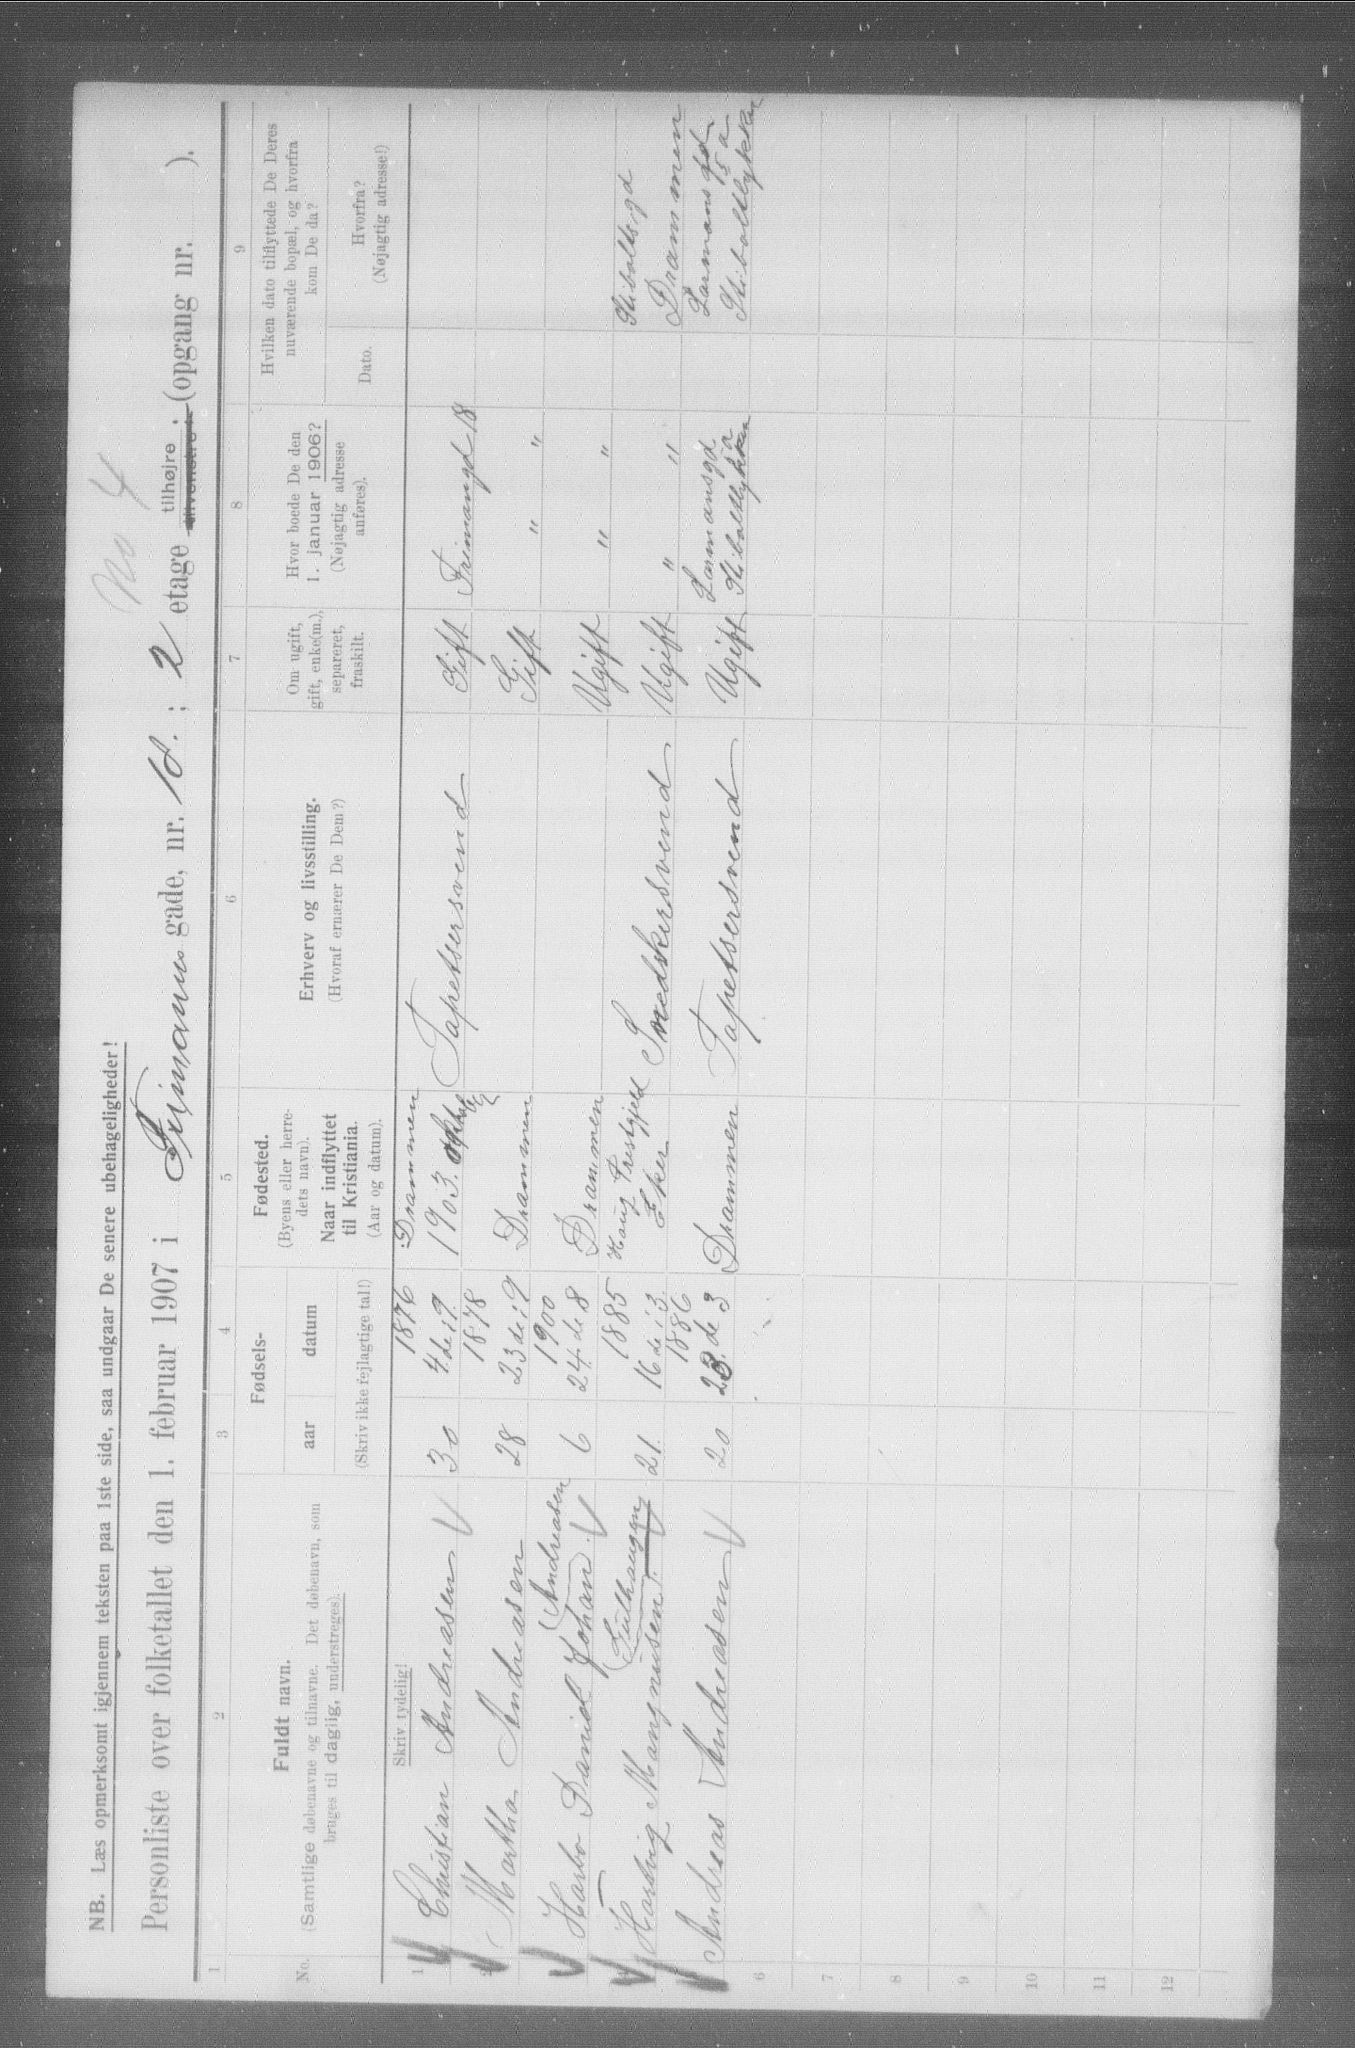 NB. Læs opmerksomt igjennem teksten paa 1ste side, saa undgaar De senere ubehageligheder!
No 4
Personliste over folketallet den 1. februar 1907 i Frimanns gade, nr. 18. ; 2 etage tilhøjre tilvenstre ; (opgang nr. ).
1 2 3 4 5 6 7 8 9
No.
Fuldt navn.
(Samtlige døbenavne og tilnavne. Det døbenavn, som
bruges til daglig, understreges).
Fødsels-
aar datum
(Skriv ikke fejlagtige tal!)
Fødested.
(Byens eller herre-
dets navn).
Naar indflyttet
til Kristiania.
(Aar og datum).
Erhverv og livsstilling.
(Hvoraf ernærer De Dem?)
Om ugift,
gift, enke(m.),
separeret,
fraskilt.
Hvor boede De den
1. januar 1906?
(Nøjagtig adresse
anføres).
Hvilken dato tilflyttede De Deres
nuværende bopæl, og hvorfra
kom De da?
Dato.
Hvorfra?
(Nøjagtig adresse!)
Skriv tydelig!
1 Christian Andreasen 30 1876 4 de i 9. Drammen 1903. Tapetsersvend Gift Frimangd 18
2 Martha Andreasen 28 1878 23 de i 9 Drammen Gift " "
Harbo Daniel Johan (Andreasen 6 1900 24 de 8 Drammen Ugift " "
Hartvig Mangnusen. (Gulhaugen 21. 1885 16 de i 3. Haug Prestgjeld Eker Snedkersvend Ugift " " Stibolts gd Drammen
Andreas Andreasen 20 1886 28. de 3 Drammen Tapetsersvend Ugift Larmansgd Stiboltlykken Larmans gd 15 a Stiboltlykken
6
7
8
9
10
11
12